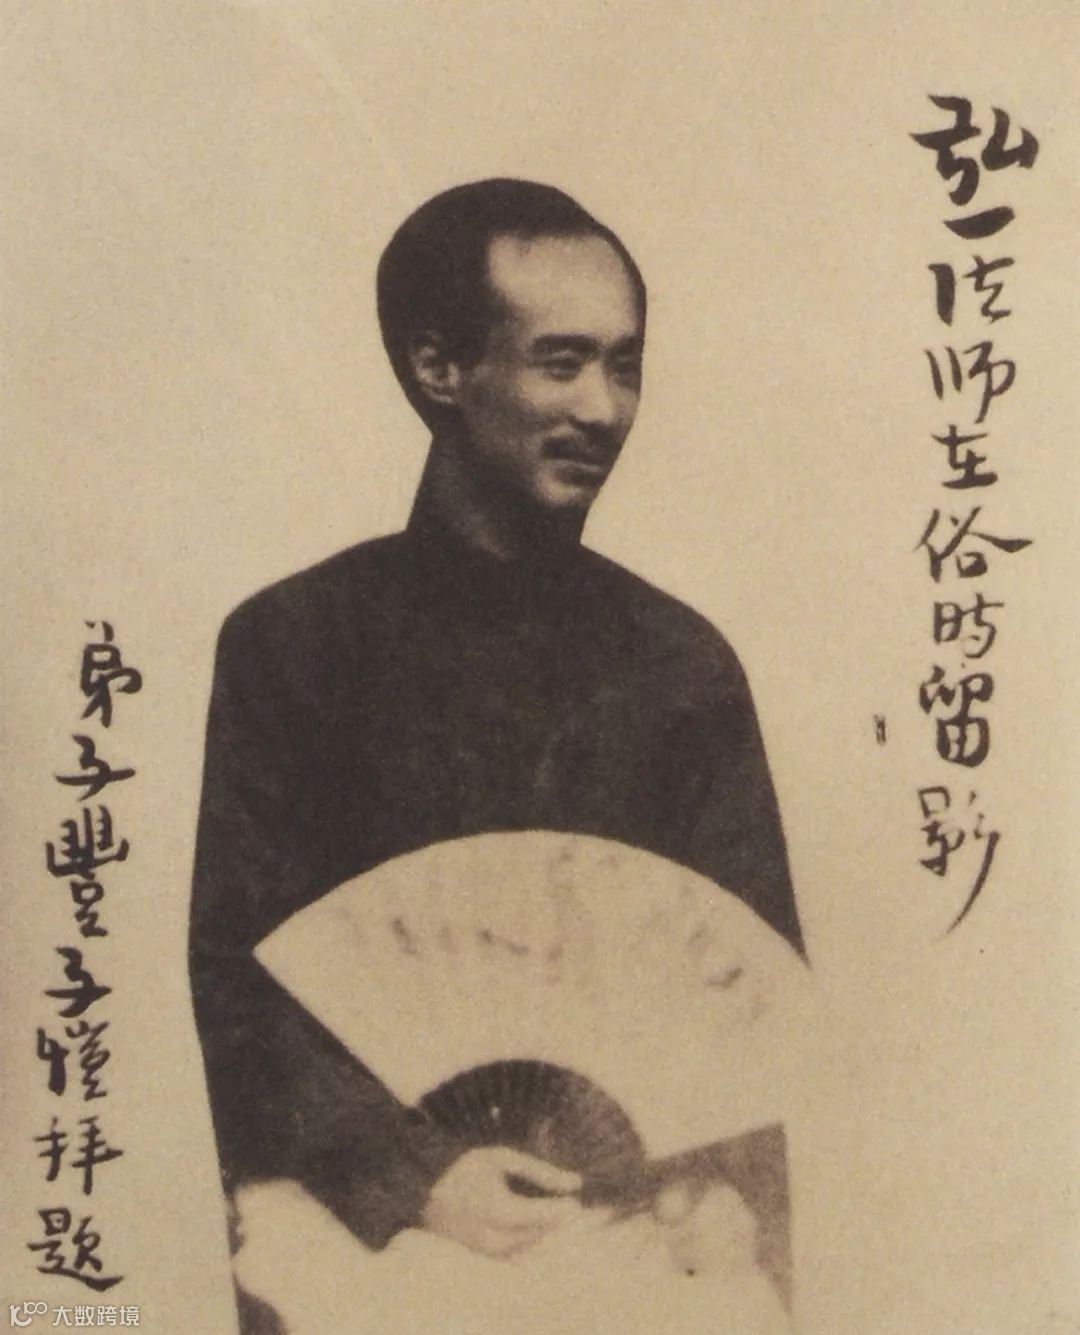 弘一法师在俗時留影
弟子豐子愷拜題
大数跨境